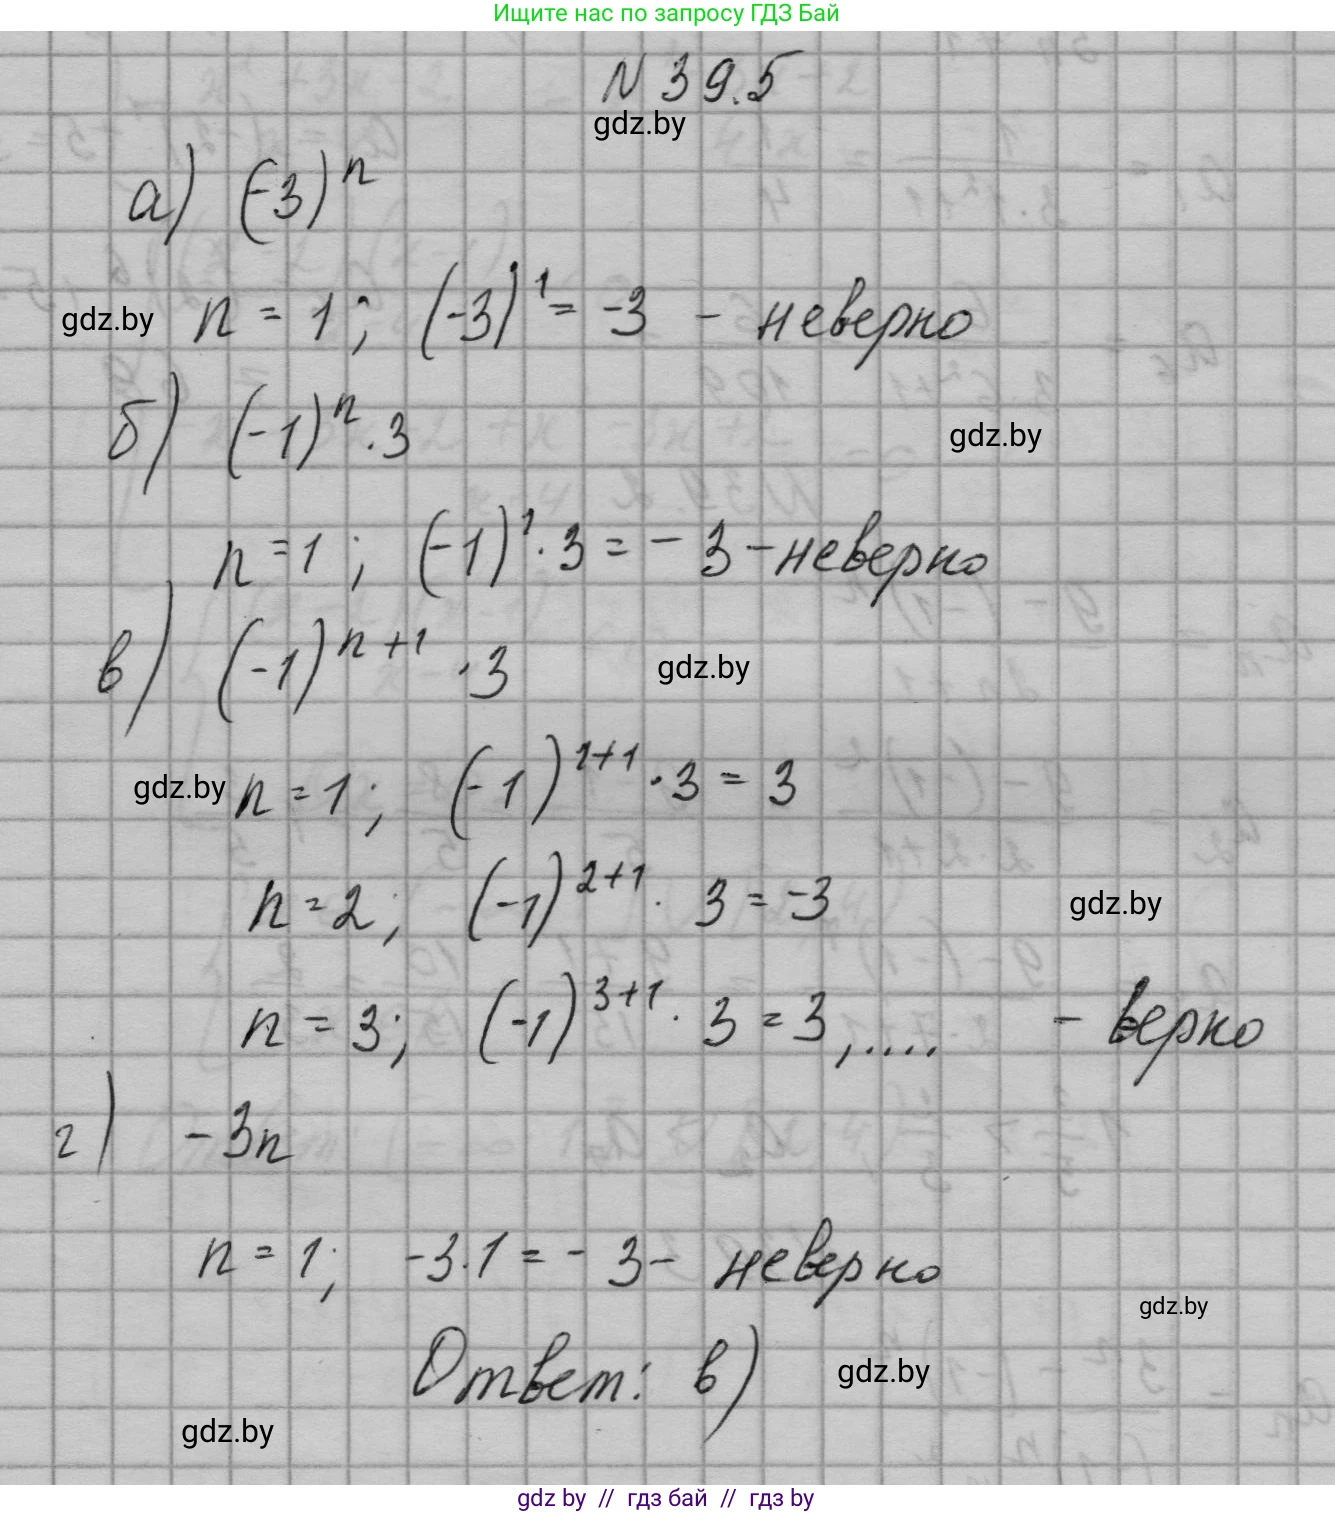 Ищите нас по запросу ГДЗ Бай
N 39.5
gdz.by
а) (-3)^n
gdz.by n = 1; (-3)^1 = -3 - неверно
б) (-1)^n · 3
gdz.by
n = 1; (-1)^1 · 3 = - 3 - неверно
в) (-1)^{n+1} · 3
gdz.by
gdz.by n = 1; (-1)^{1+1} · 3 = 3
n = 2; (-1)^{2+1} · 3 = -3
gdz.by
n = 3; (-1)^{3+1} · 3 = 3, .... - верно
г) -3n
n = 1; -3·1 = - 3 - неверно
gdz.by
Ответ: в)
gdz.by
gdz.by
gdz by // гдз бай // гдз by